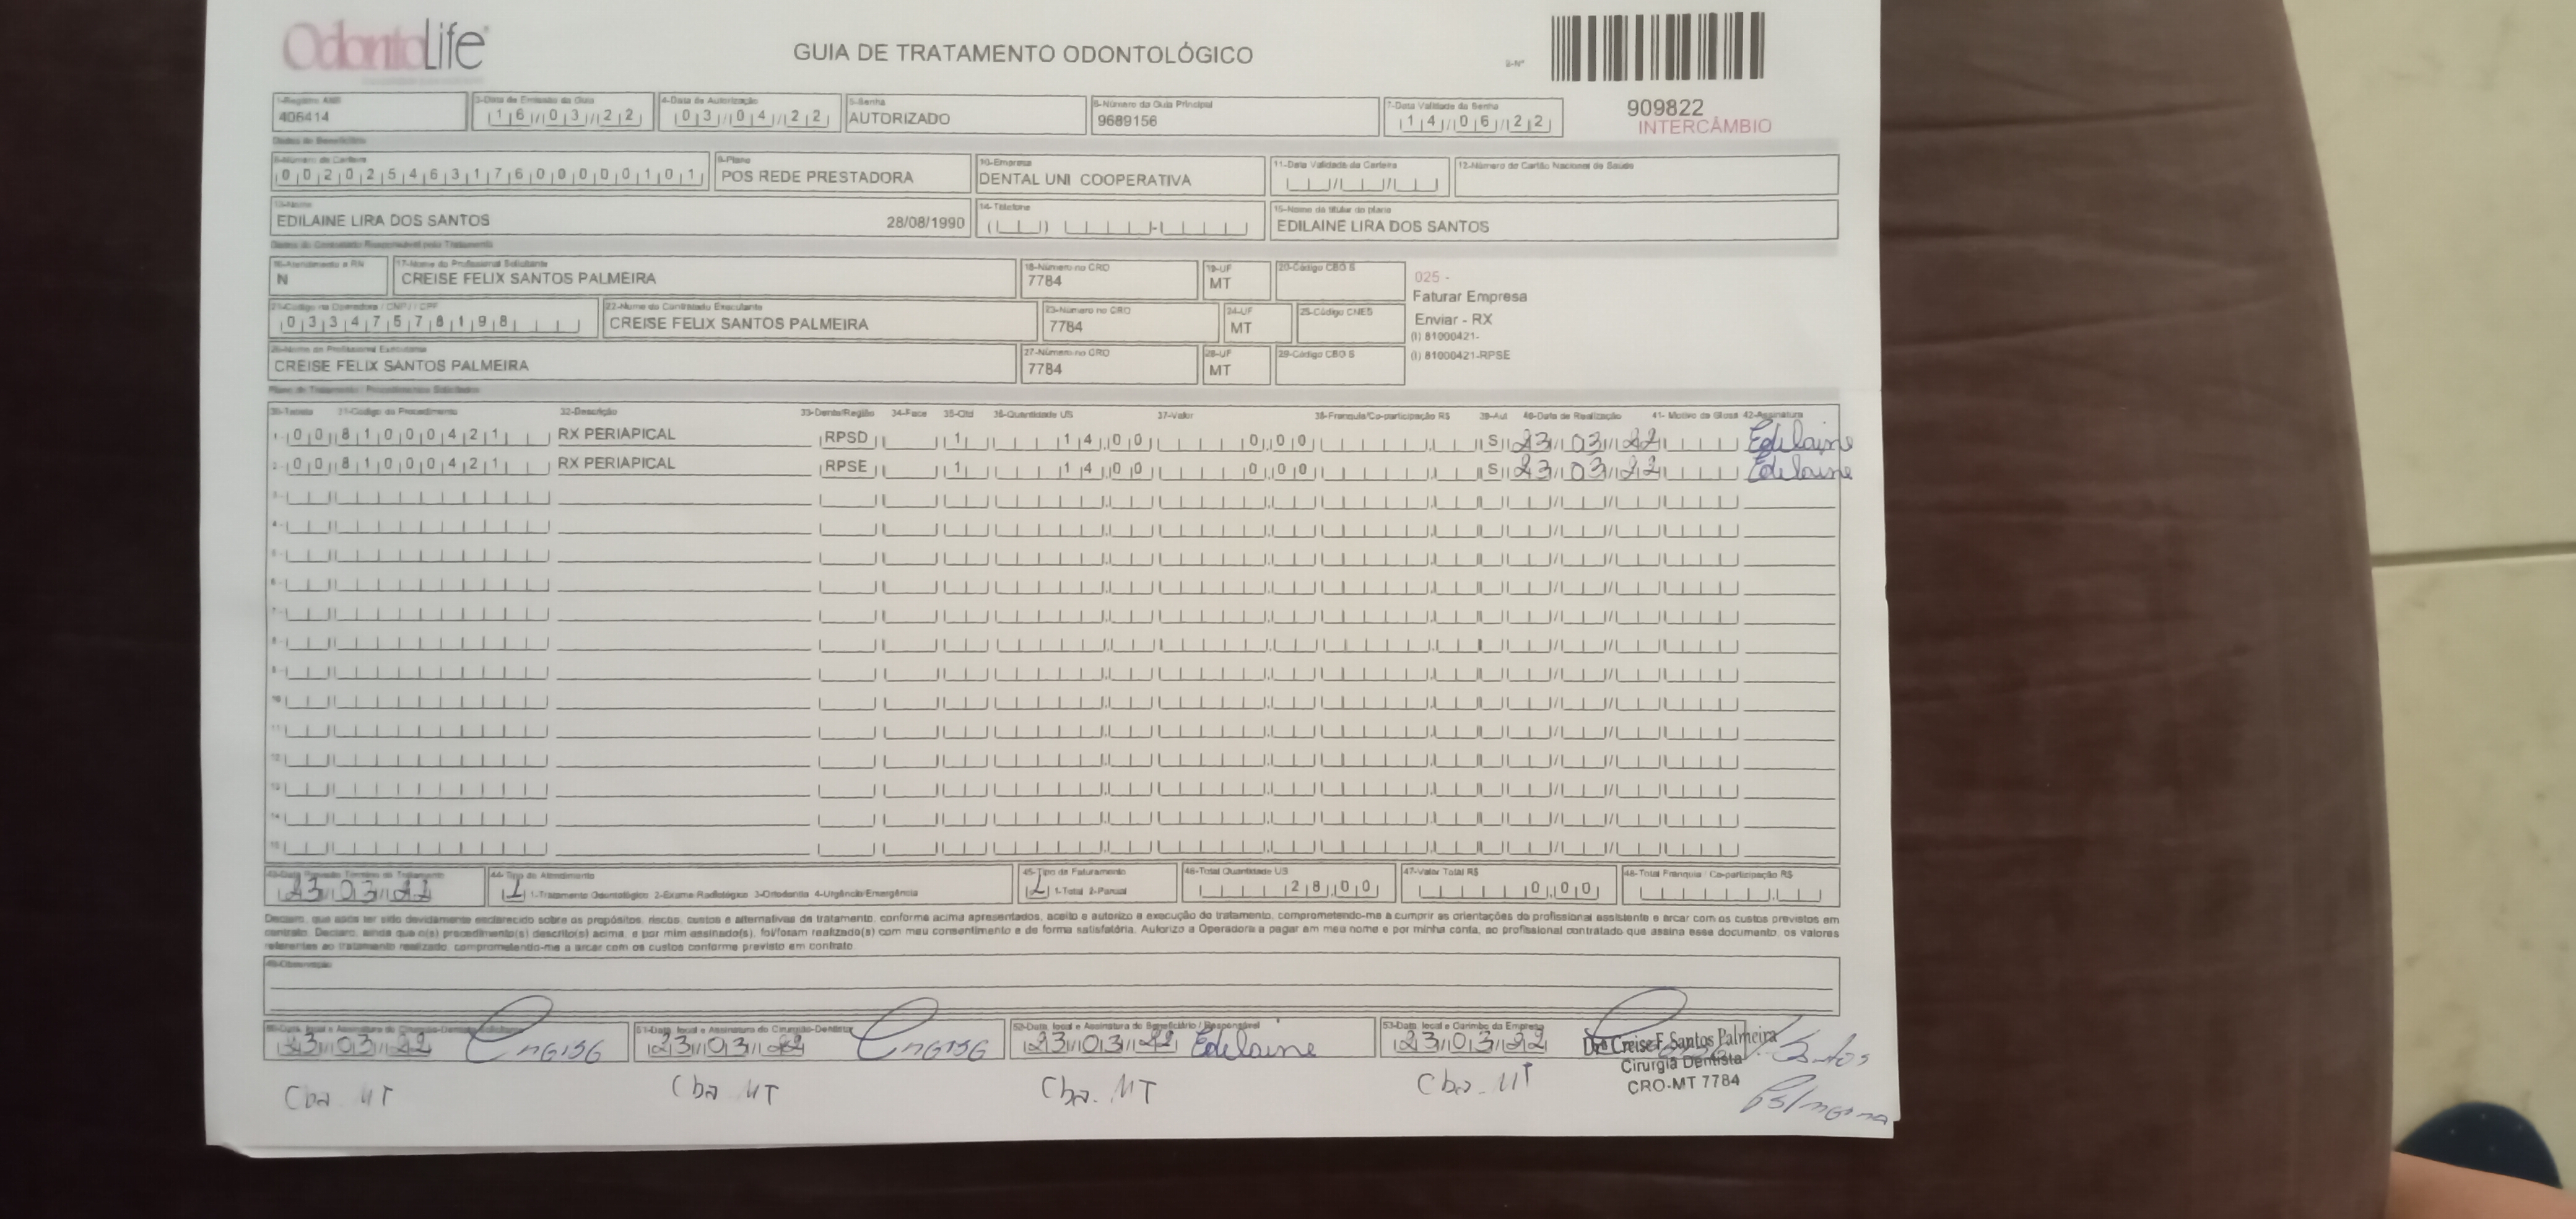 OdontoLife
GUIA DE TRATAMENTO ODONTOLÓGICO
2-Nº
1-Registro ANS 3-Data de Emissão da Guia 4-Data de Autorização 5-Senha 6-Número da Guia Principal 7-Data Validade da Senha
406414 16/03/22 03/04/22 AUTORIZADO 9689156 14/06/22
909822
INTERCÂMBIO
Dados do Beneficiário
8-Número da Carteira 9-Plano 10-Empresa 11-Data Validade da Carteira 12-Número do Cartão Nacional de Saúde
00202546317600000101 POS REDE PRESTADORA DENTAL UNI COOPERATIVA
13-Nome 14-Telefone 15-Nome do titular do plano
EDILAINE LIRA DOS SANTOS 28/08/1990 EDILAINE LIRA DOS SANTOS
Dados do Contratado Responsável pelo Tratamento
16-Atendimento a RN 17-Nome do Profissional Solicitante 18-Número no CRO 19-UF 20-Código CBO S
N CREISE FELIX SANTOS PALMEIRA 7784 MT
025 -
Faturar Empresa
21-Código na Operadora / CNPJ / CPF 22-Nome do Contratado Executante 23-Número no CRO 24-UF 25-Código CNES
03347578198 CREISE FELIX SANTOS PALMEIRA 7784 MT
Enviar - RX
(I) 81000421-
26-Nome do Profissional Executante 27-Número no CRO 28-UF 29-Código CBO S
CREISE FELIX SANTOS PALMEIRA 7784 MT
(I) 81000421-RPSE
Plano de Tratamento / Procedimentos Solicitados
30-Tabela 31-Código do Procedimento 32-Descrição 33-Dente/Região 34-Face 35-Qtd 36-Quantidade US 37-Valor 38-Franquia/Co-participação R$ 39-Aut 40-Data de Realização 41- Motivo da Glosa 42-Assinatura
1- 00 81000421 RX PERIAPICAL RPSD 1 14,00 0,00 S 23/03/22 Edilaine
2- 00 81000421 RX PERIAPICAL RPSE 1 14,00 0,00 S 23/03/22 Edilaine
3-
4-
5-
6-
7-
8-
9-
10-
11-
12-
13-
14-
15-
43-Data Prevista Término do Tratamento 44-Tipo de Atendimento 45-Tipo de Faturamento 46-Total Quantidade US 47-Valor Total R$ 48-Total Franquia / Co-participação R$
23/03/22 1 1-Tratamento Odontológico 2-Exame Radiológico 3-Ortodontia 4-Urgência/Emergência 1-Total 2-Parcial 28,00 0,00
Declaro, que após ter sido devidamente esclarecido sobre os propósitos, riscos, custos e alternativas de tratamento, conforme acima apresentados, aceito e autorizo a execução do tratamento, comprometendo-me a cumprir as orientações do profissional assistente e arcar com os custos previstos em
contrato. Declaro, ainda que o(s) procedimento(s) descrito(s) acima, e por mim assinado(s), foi/foram realizado(s) com meu consentimento e de forma satisfatória. Autorizo a Operadora a pagar em meu nome e por minha conta, ao profissional contratado que assina esse documento, os valores
referentes ao tratamento realizado, comprometendo-me a arcar com os custos conforme previsto em contrato.
49-Observação
50-Data, local e Assinatura do Cirurgião-Dentista Solicitante 51-Data, local e Assinatura do Cirurgião-Dentista 52-Data, local e Assinatura do Beneficiário / Responsável 53-Data, local e Carimbo da Empresa
23/03/22 23/03/22 23/03/22 Edilaine 23/03/22
Drª Creise F. Santos Palmeira
Cirurgiã Dentista
CRO-MT 7784
Cba MT Cba MT Cba. MT Cba. MT
Santos
Palmeira